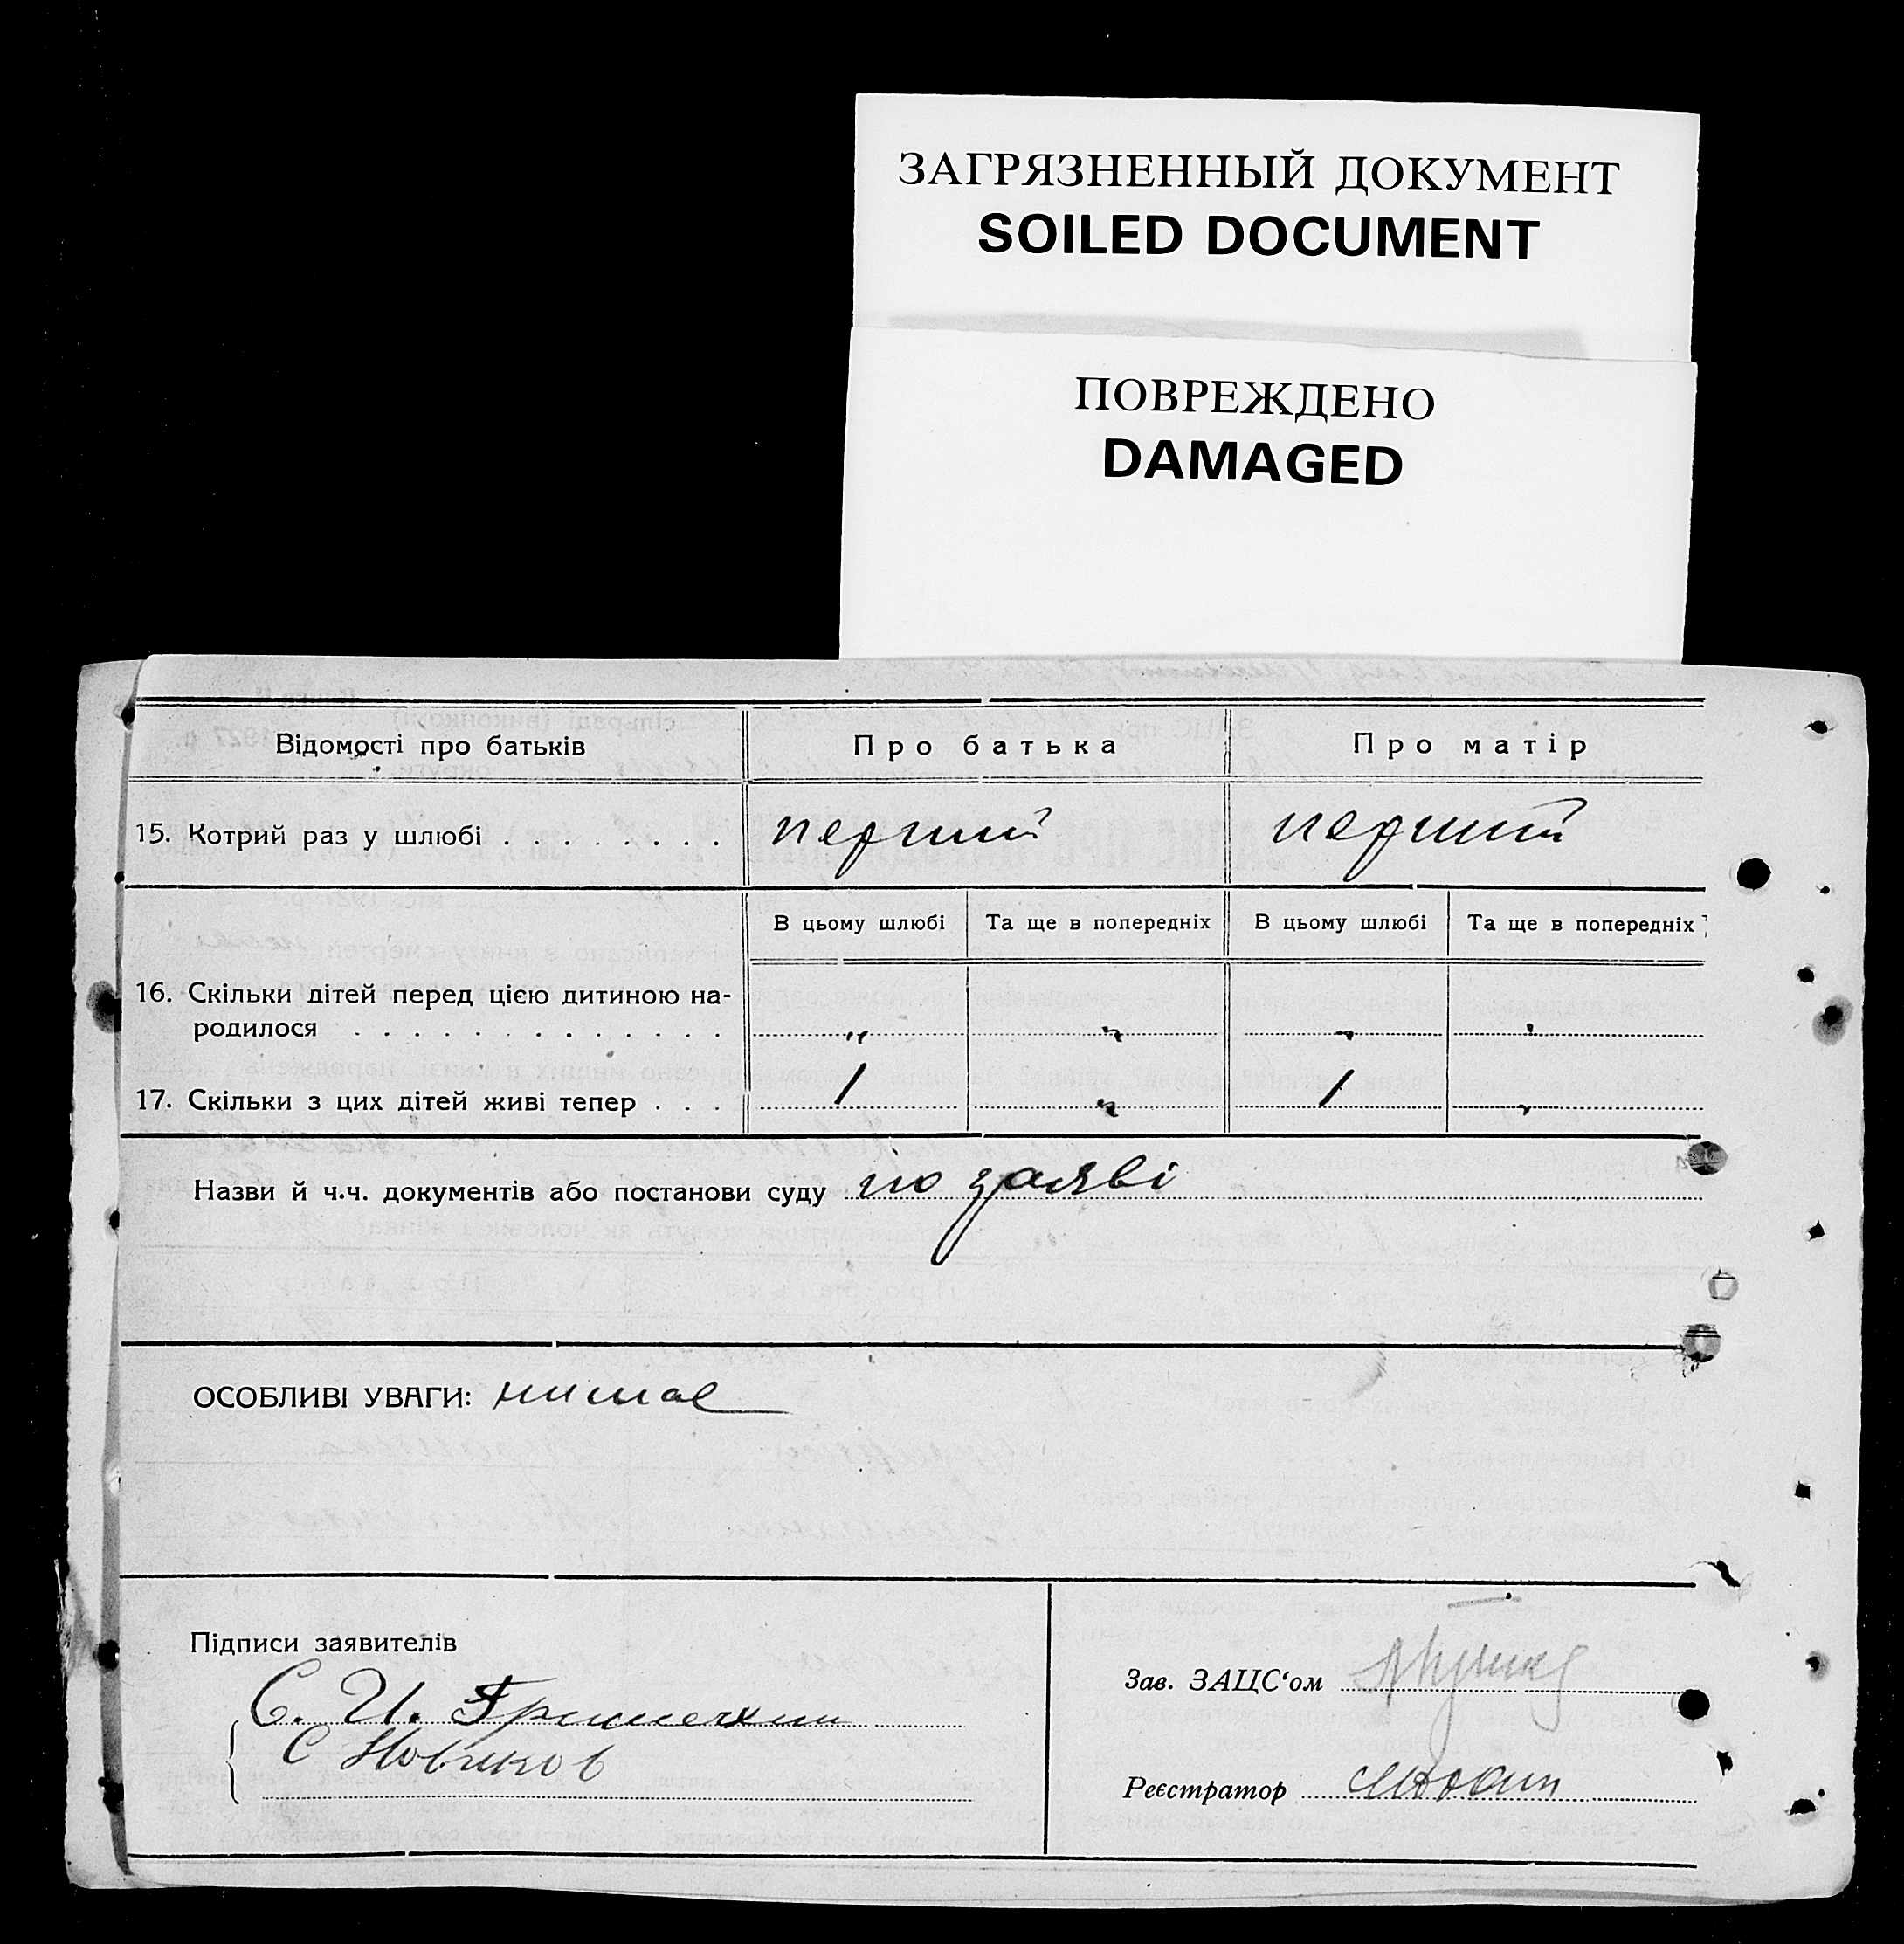 ЗАГРЯЗНЕННЫЙ ДОКУМЕНТ
SOILED DOCUMENT
ПОВРЕЖДЕНО
DAMAGED
Відомості про батьків Про батька Про матір
15. Котрий раз у шлюбі . . . . . . . . перший перший
В цьому шлюбі Та ще в попередніх В цьому шлюбі Та ще в попередніх
16. Скільки дітей перед цією дитиною на-
родилося . . . . . . . . . . . . . „ „ „ „
17. Скільки з цих дітей живі тепер . . . 1 „ 1 „
Назви й ч.ч. документів або постанови суду по заяві
ОСОБЛИВІ УВАГИ: нимае
Підписи заявителів
Зав. ЗАЦС'ом
С. И.
С Новиков
Реєстратор